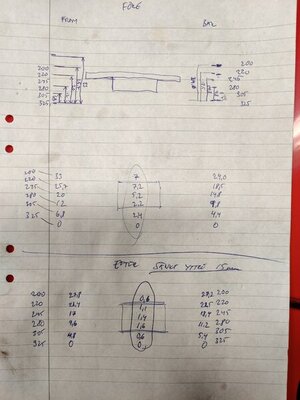 FÖRE
FRAM BAK
200 200
220 220
245 245
280 280
305 305
325 325
200 33 7 24,0
220 25,7 7,2 18,5
245 20 5,2 14,8
280 12 2,2 9,8
305 6,8 2,4 4,4
325 0 0 0
EFTER SÄNKT YTTRE 15mm
200 27,8 0,6 27,2 200
220 22,4 1,1 22,5 220
245 17 1,4 18,4 245
280 9,6 1,6 11,2 280
305 4,8 0,6 5,4 305
325 0 0 0 325